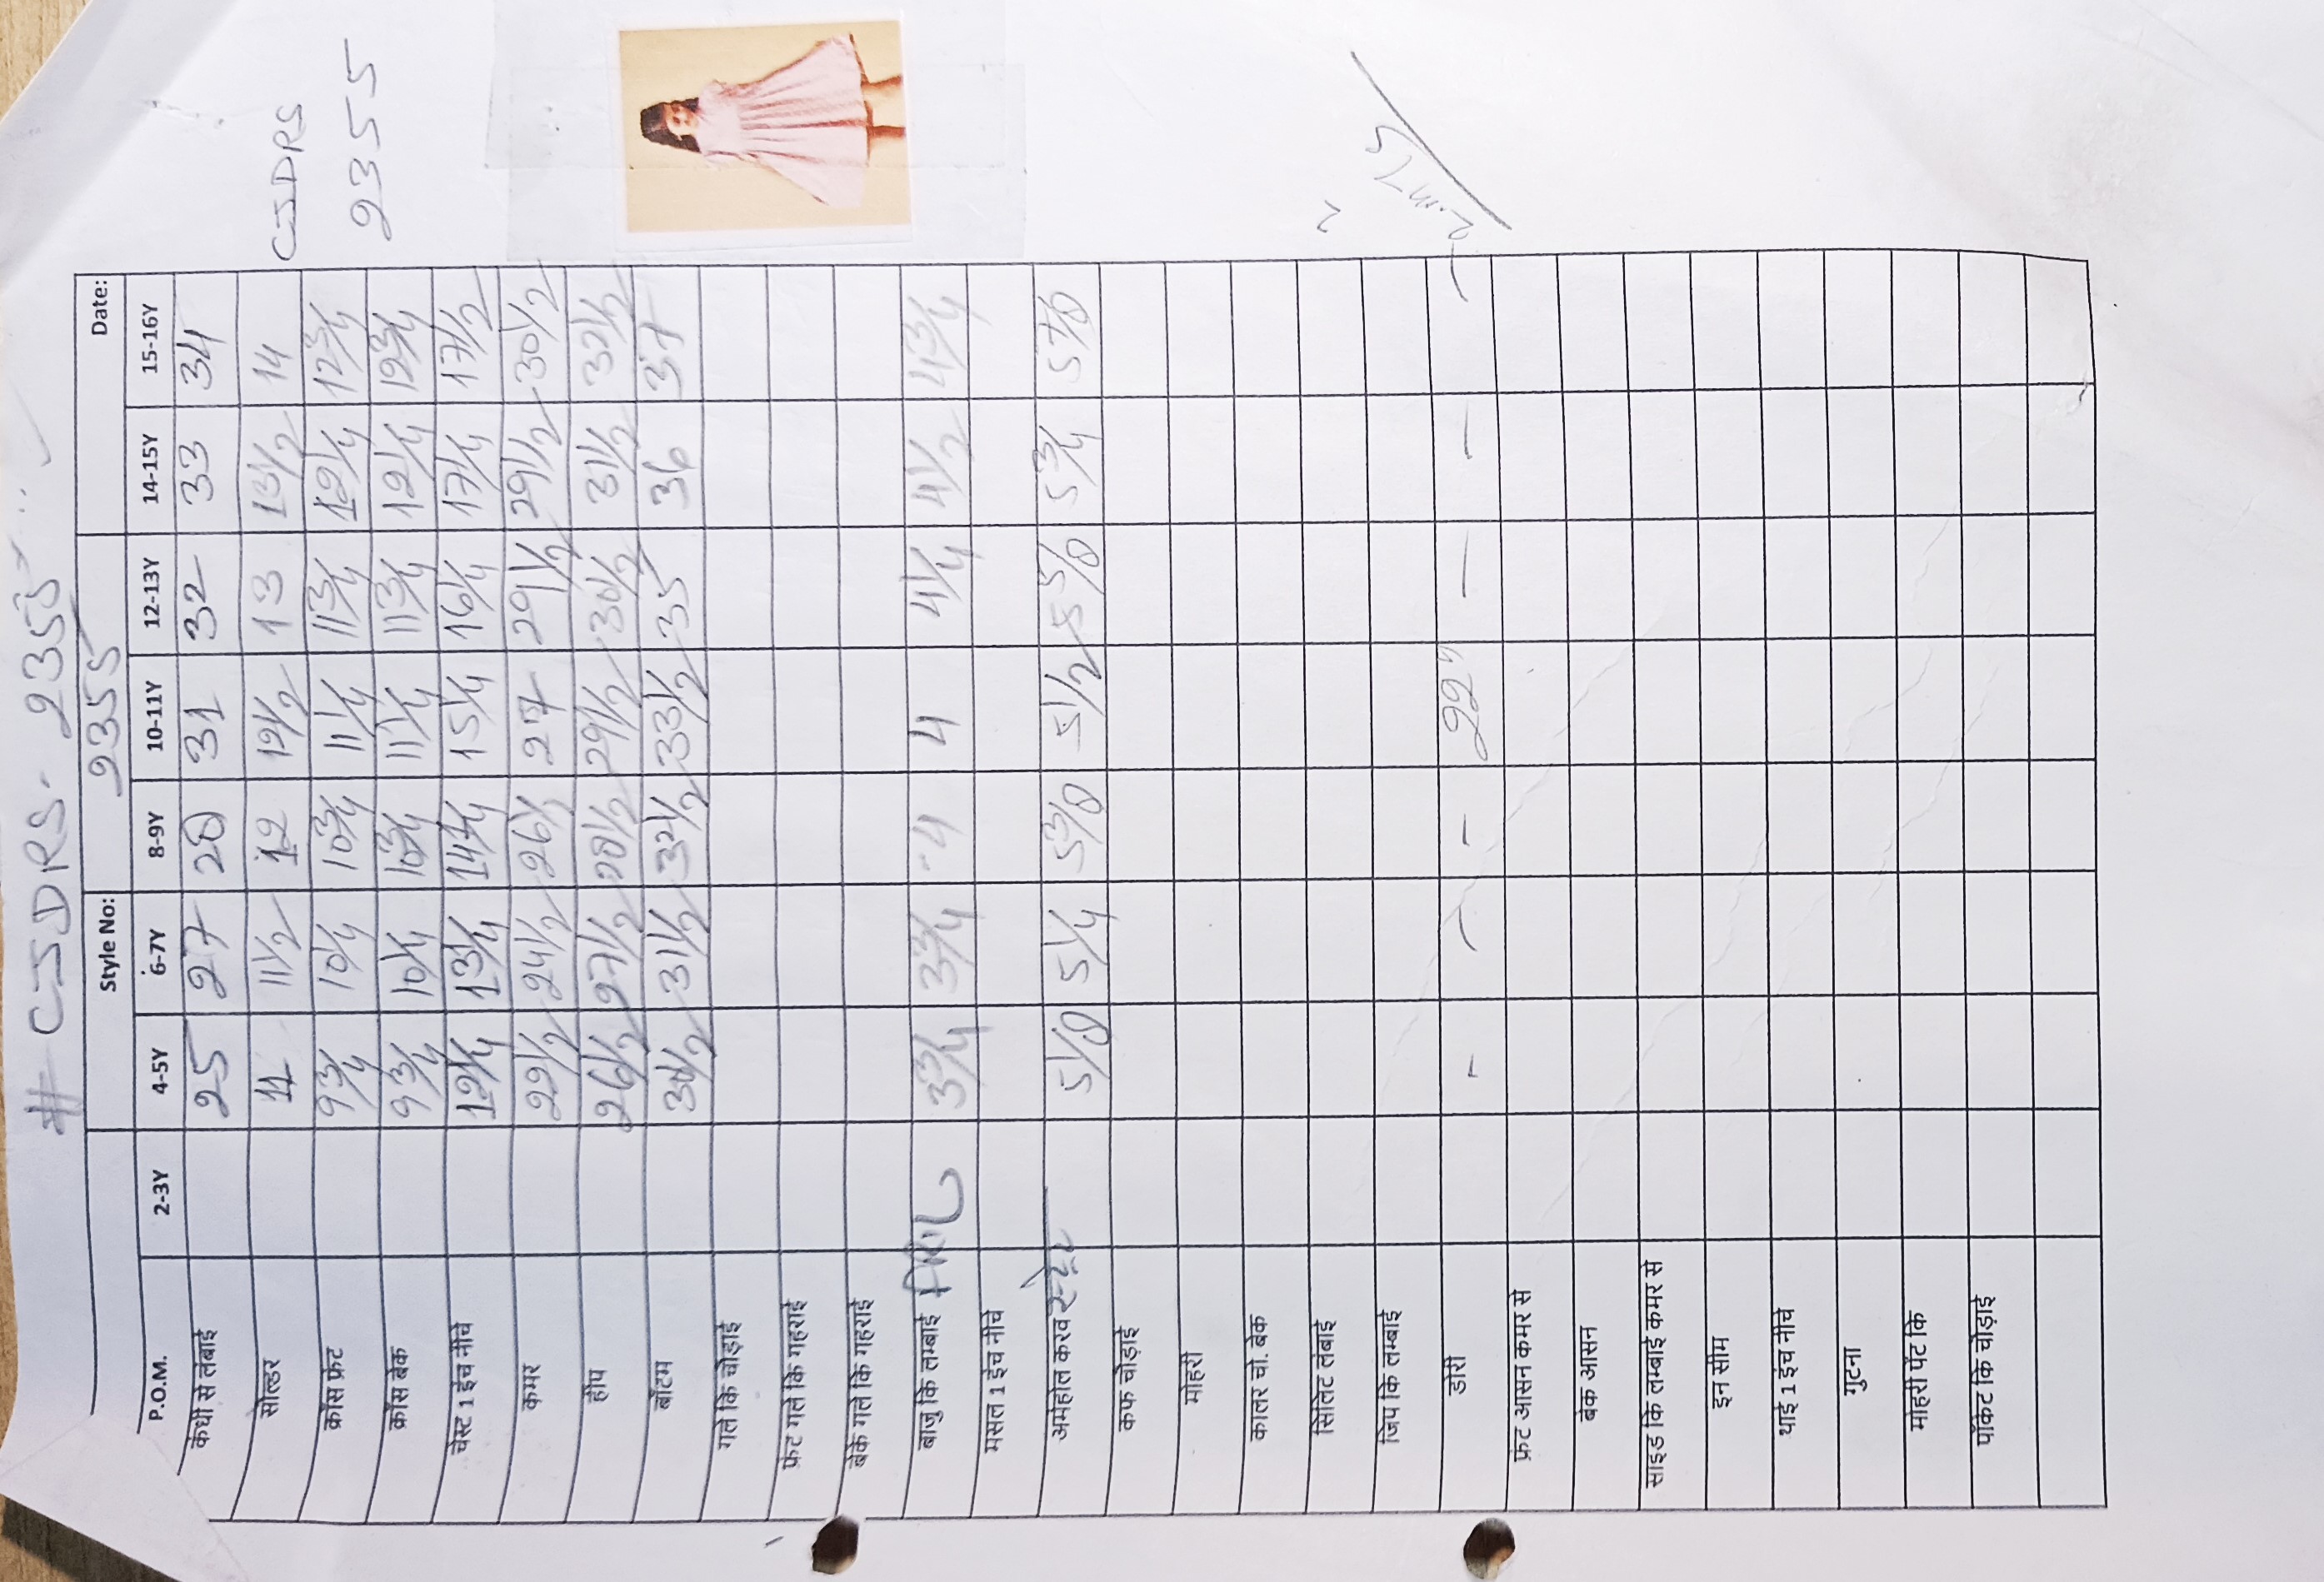 # CJDRS- 2355
CJDRS
2355
Style No: 2355 Date:
P.O.M. 2-3Y 4-5Y 6-7Y 8-9Y 10-11Y 12-13Y 14-15Y 15-16Y
कंधी से लंबाई 25 27 28 31 32 33 34
सोल्डर 11 11 1/2 12 12 1/2 13 13 1/2 14
क्रॉस फ्रंट 9 3/4 10 1/4 10 3/4 11 1/4 11 3/4 12 1/4 12 3/4
क्रॉस बेक 9 3/4 10 1/4 10 3/4 11 1/4 11 3/4 12 1/4 12 3/4
चेस्ट 1 इंच नीचे 12 1/4 13 1/4 14 1/4 15 1/4 16 1/4 17 1/4 17 1/2
कमर 22 1/2 24 1/2 26 27 29 1/2 29 1/2 30 1/2
हीप 26 1/2 27 1/2 28 1/2 29 1/2 30 1/2 31 1/2 32 1/2
बॉटम 30 1/2 31 1/2 32 1/2 33 1/2 35 36 37
गले कि चौड़ाई
फ्रंट गले कि गहराई
बेक गले कि गहराई
बाजु कि लम्बाई 3 3/4 3 3/4 4 4 4 1/4 4 1/2 4 3/4
मसल 1 इंच नीचे
अर्महोल करव स्टेट 5 1/8 5 1/4 5 3/8 5 1/2 5 5/8 5 3/4 5 7/8
कफ चौड़ाई
मोहरी
कालर चौ. बेक
सिलिट लंबाई
जिप कि लम्बाई
डोरी - - - 22" - - -
फ्रंट आसन कमर से
बेक आसन
साइड कि लम्बाई कमर से
इन सीम
थाई 1 इंच नीचे
गुटना
मोहरी पेंट कि
पॉकेट कि चौड़ाई